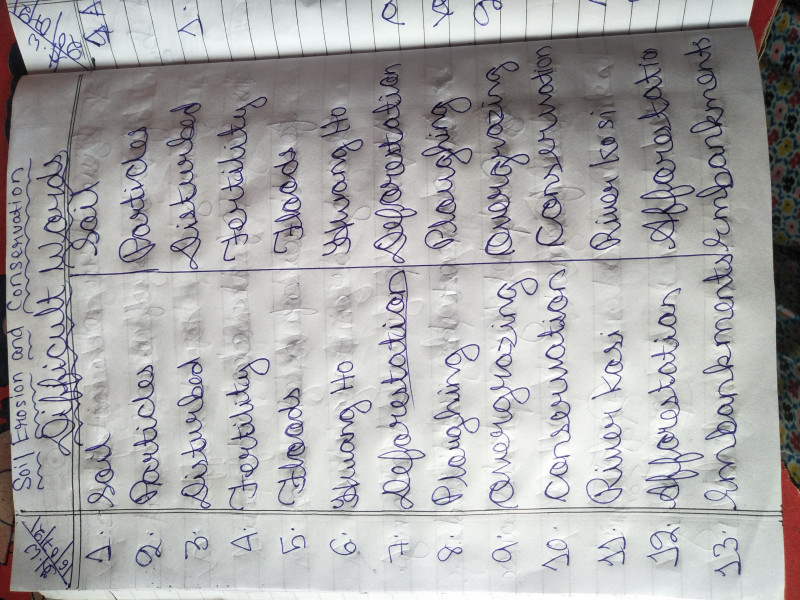 Soil Erosion and Conservation
Difficult Words
1. Soil Soil
2. Particles Particles
3. Disturbed Disturbed
4. Fertility Fertility
5. Floods Floods
6. Hwang Ho Hwang Ho
7. Deforestation Deforestation
8. Ploughing Ploughing
9. Overgrazing Overgrazing
10. Conservation Conservation
11. River Kosi River Kosi
12. Afforestation Afforestatio
13 Embankments Embankments